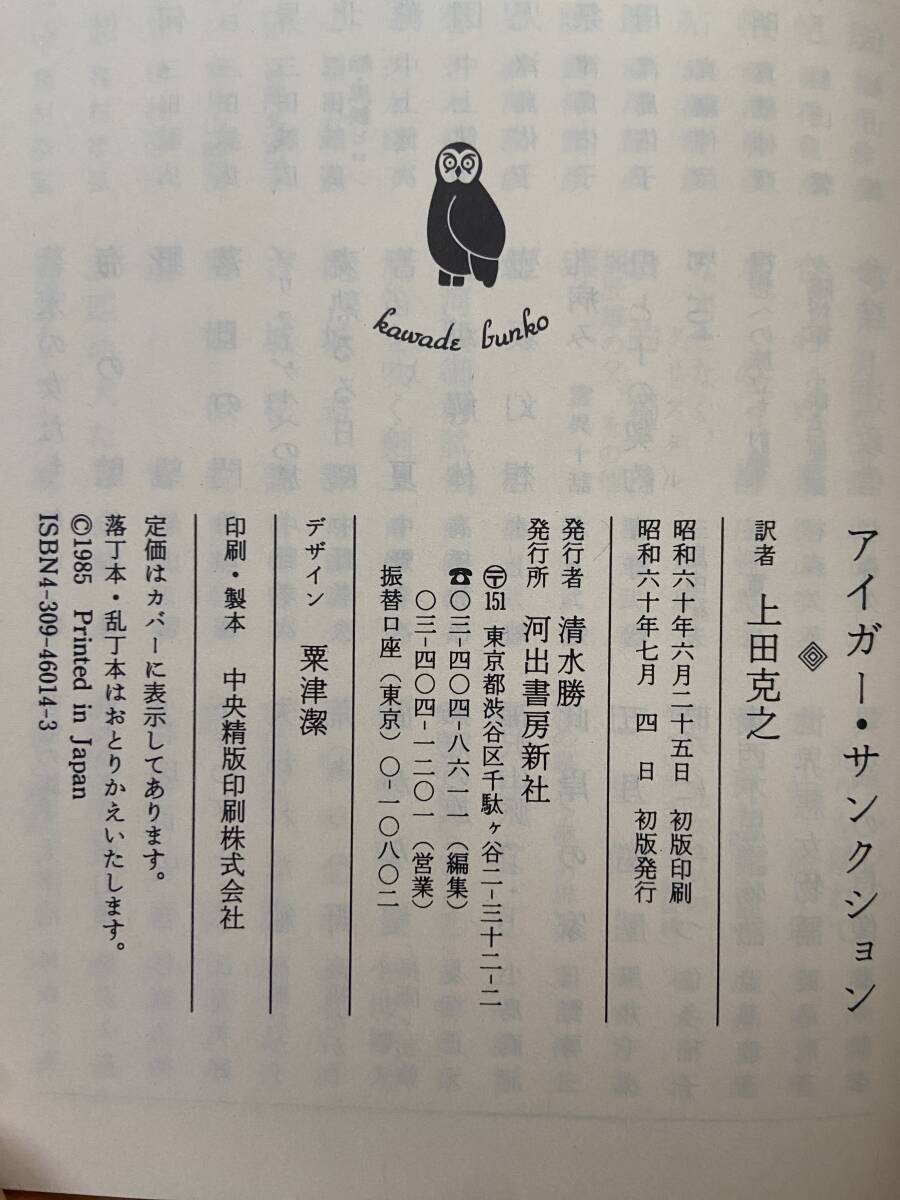 kawade bunko
アイガー・サンクション
訳者 上田克之
昭和六十年六月二十五日 初版印刷
昭和六十年七月 四 日 初版発行
発行者 清水勝
発行所 河出書房新社
〶151 東京都渋谷区千駄ヶ谷二-三十二-二
☎〇三-四〇四-八六一一(編集)
〇三-四〇四-一二〇一(営業)
振替口座(東京)〇-一〇八〇二
デザイン 粟津潔
印刷・製本 中央精版印刷株式会社
定価はカバーに表示してあります。
落丁本・乱丁本はおとりかえいたします。
©1985 Printed in Japan
ISBN4-309-46014-3